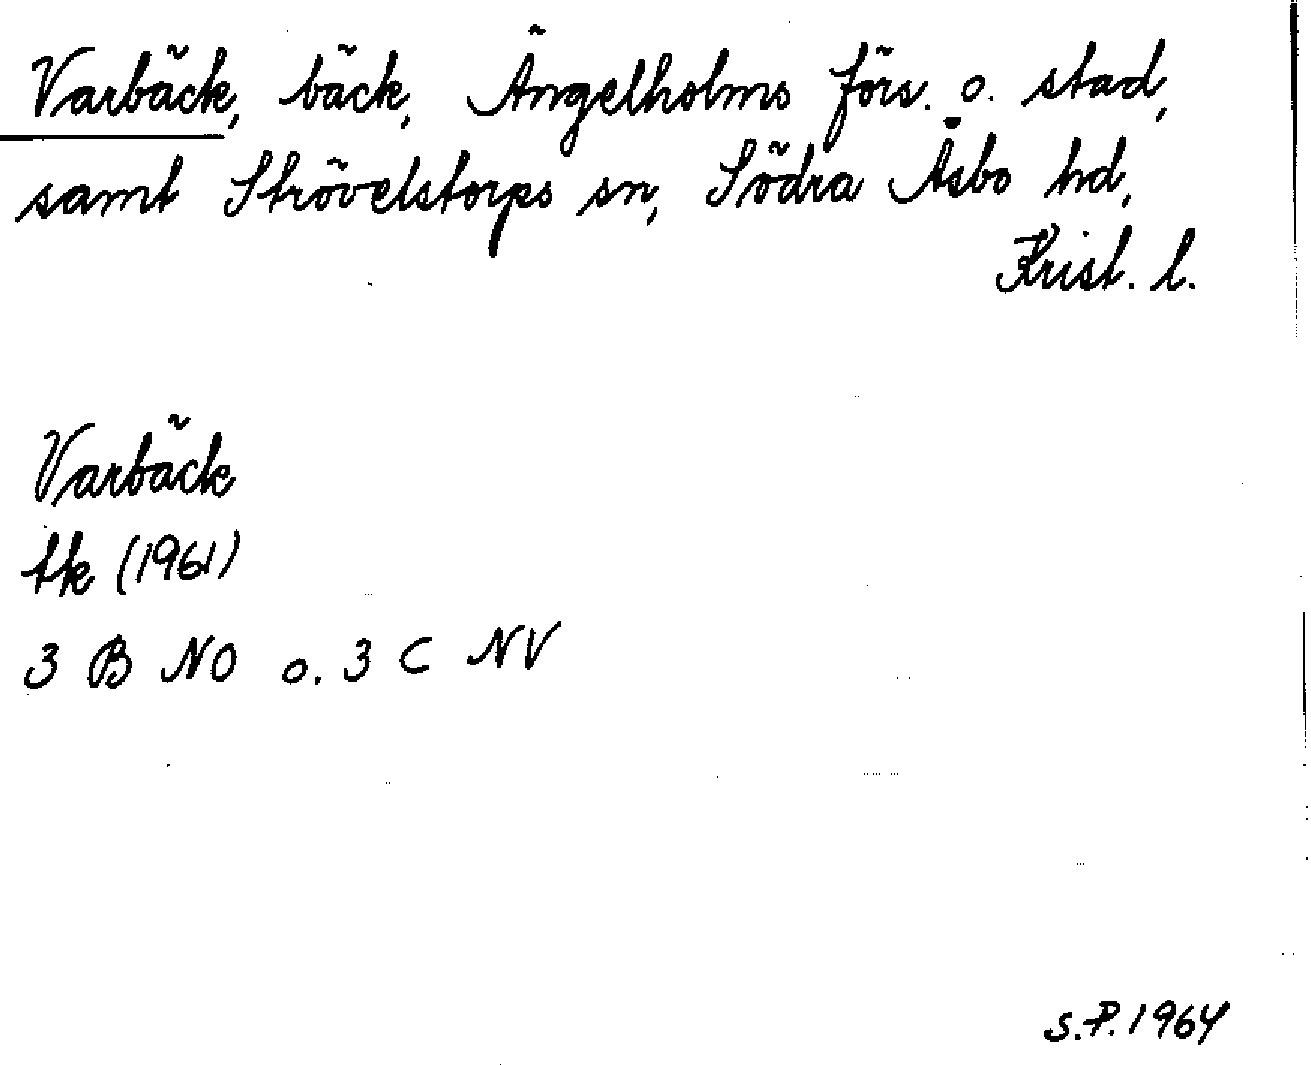 Varbäck, bäck, Ängelholms förs. o. stad,
samt Strövelstorps sn, Södra Åsbo hd,
Krist. l.
Varbäck
tk (1961)
3 B NO o. 3 C NV
S.P. 1964